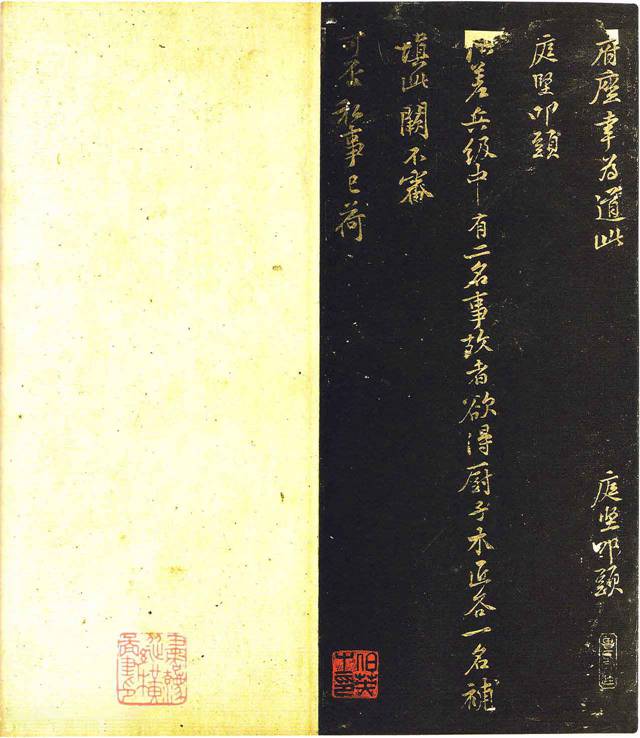 府座幸为道此
庭坚叩頭
庭堅叩頭
差兵级中有二名事故者欲得厨子木匠各一名補
填此闕不審
可否私事已荷